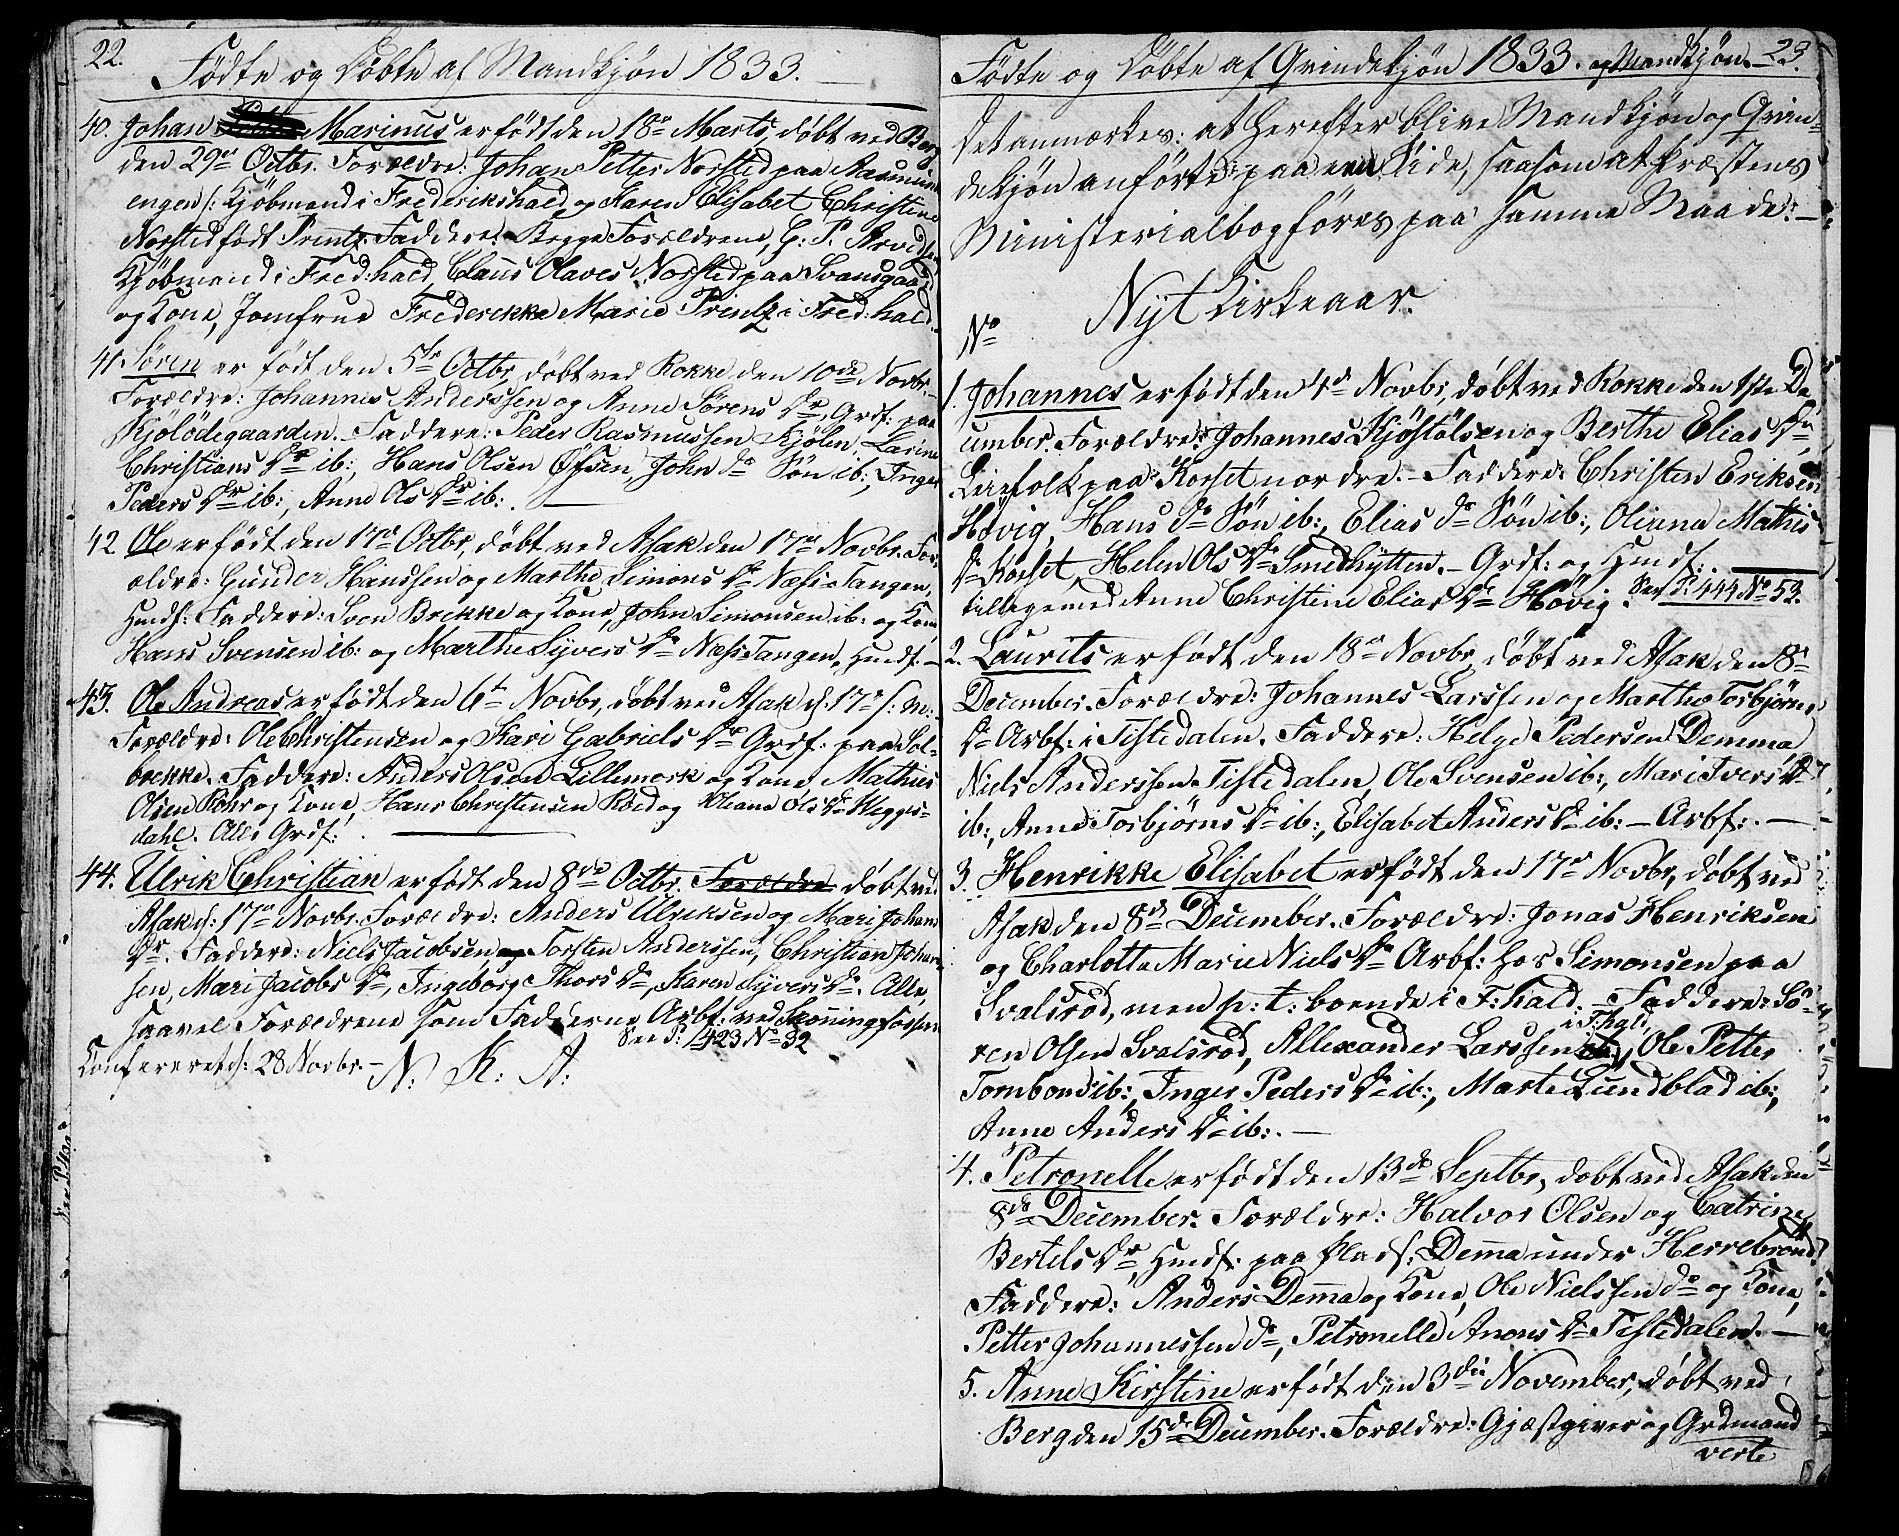 22.
Födte og Döbte af Mandkjön 1833.
40. Johan Marinus er födt den 18de Marts, döbt ved Berg
den 29de Octbr. Forældre: Johan Petter Norsted paa
engen /: Kjöbmand i Frederikshald og Karen Elisabet Christine
Norsted födt Printz. Faddere: Begge Forældrene, G: P.
Kjöbmand i Fred:hald, Claus Olaves Norsted paa Svansgaard
og Kone, Jomfrue Frederikke Marie Printz i Fred:hald.
41. Sören er födt den 5te Octbr, döbt ved Rokke den 10de Novbr.
Forældre: Johannes Anderssen og Anne Sörens Dr, Grdf: paa
Kjölödegaarden. Faddere: Peder Rasmussen Kjölen, Larine
Christians Dr ib:, Hans Olsen Öfsen, John do Sön ib:, Inger
Peders Dr ib:, Anne Ols Dr ib:.
42 Ole er födt den 17de Octbr, döbt ved Asak den 17de Novbr. For-
ældre: Gunder Hanssen og Marthe Simons Dr Næss Tangen,
Huusf: Faddere: Sven Brekke og Kone, John Simonsen ib: og Kone,
Hans Svensen ib: og Marthe Syvers Dr Næss Tangen, Huusf. —
43. Ole Andreas er födt den 6te Novbr, döbt ved Asak d: 17de s: m:
Forældre: Ole Christensen og Kari Gabriels Dr Grdf: paa Sol-
brekke. Faddere: Anders Olsen Lillemork og Kone, Mathies
Olsen Röhr og Kone, Hans Christensen Röed og Oleane Ols Dr Wegges-
dahl. Alle Grdf:.
44. Ulrik Christian er födt den 8de Octbr. Forældre döbt ved
Asak d: 17de Novbr. Forældre: Anders Ulriksen og Mari Johans
Dr. Faddere: Niels Jacobsen og Torsten Anderssen, Christian Johan-
sen, Mari Jacobs Dr, Ingeborg Thors Dr, Karen Syvers Dr. Alle,
saavel Forældrene som Fadderne Arbf: ved Skonningfossen
See P: 1423 No 32
Confereret d: 28 Novbr. — N: K: A:
23.
Födte og Döbte af Qvindekjön 1833. og Mandkjön
Det anmærkes: at herefter blive Mandkjön og Qvin-
dekjön anförte paa een Side, saasom at Præstens
Ministerialbog föres paa samme Maade: —
Nyt Kirkeaar.
No
1. Johannes er födt den 4de Novbr, döbt ved Rokke den 1ste De-
cember. Forældre: Johannes Kjöstölsen og Berthe Elias Dr,
Leiefolk paa Korset nordre. — Faddere: Christen Eriksen
Hövig, Hans do Sön ib:, Elias do Sön ib:, Oliana Mathis
Dr Korset, Helen Ols Dr Smedhytten. — Grdf: og Huusf:.
tilligemed Anne Christine Elias Dr Hövig. See P: 444 No 53.
2. Laurits er födt den 18de Novbr, döbt ved Asak den 8de
December. Forældre: Johannes Larssen og Marthe Torbjörns
Dr Arbf: i Tistedalen. Faddere: Helge Pedersen Demma
Niels Anderssen Tistedalen, Ole Svensen ib:, Mari Ivers Dr
ib:, Anne Torbjörns Dr ib:, Elisabet Anders Dr ib: — Arbf:. —
3. Henrikke Elisabet er födt den 17de Novbr, döbt ved
Asak den 8de December. Forældre: Jonas Henriksen
og Charlotte Marie Niels Dr Arbf: hos Simonsen paa
Svalsröd, men p: t: boende i F:hald. — Faddere: Sö-
ren Olsen Svalsröd, Allexander Larssen i F:hald, Ole Petter
Tombond ib:, Inger Peders Dr ib:, Marte Lundblad ib:,
Anne Anders Dr ib:. —
4. Petronelle er födt den 13de Septbr, döbt ved Asak den
8de December. Forældre: Halvor Olsen og Catrine
Bertels Dr, Huusf: paa Plads: Demma under Herrebrond
Faddere: Anders Demma og Kone, Ole Nielssen do og Kone,
Petter Johannessen do, Petronelle Anons Dr Tistedalen. —
5. Anne Kirstine er födt den 3die November, döbt ved
Berg den 15de December. Forældre: Gjæstgiver og Grdmand
verte